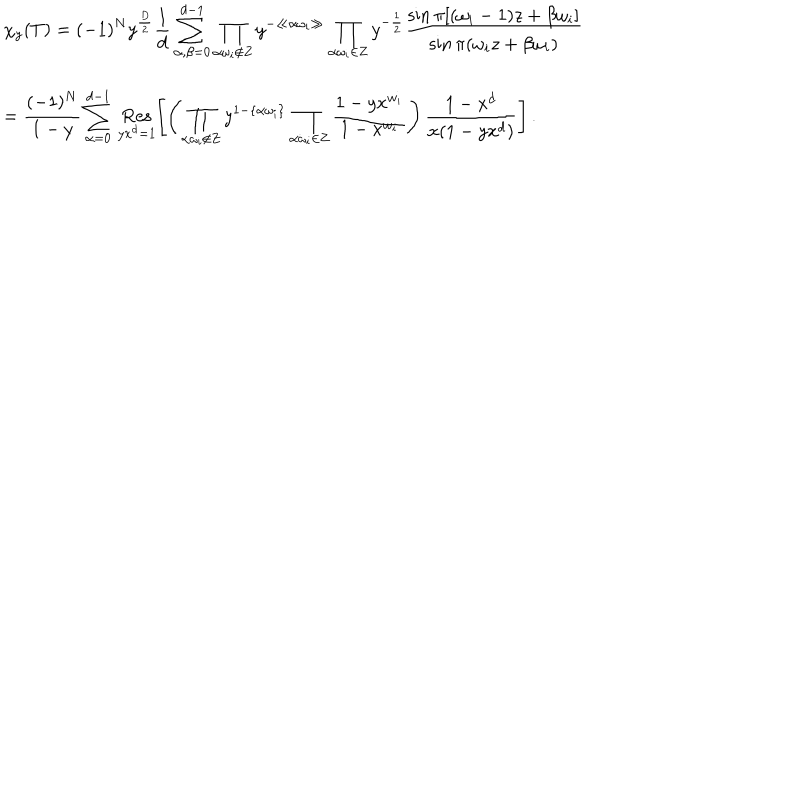 \chi_y(T) = (-1)^N y^{\frac{D}{2}} \frac{1}{d} \sum_{\alpha,\beta=0}^{d-1} \prod_{\alpha\omega_i \notin Z} y^{-\ll\alpha\omega_i\gg} \prod_{\alpha\omega_i \in Z} y^{-\frac{1}{2}} \frac{\sin \pi[(\omega_i - 1)z + \beta\omega_i]}{\sin \pi(\omega_i z + \beta\omega_i)}
= \frac{(-1)^N}{1-y} \sum_{\alpha=0}^{d-1} \operatorname{Res}_{yx^d=1} \left[ \left( \prod_{\alpha\omega_i \notin Z} y^{1-\{\alpha\omega_i\}} \prod_{\alpha\omega_i \in Z} \frac{1 - yx^{w_i}}{1 - x^{w_i}} \right) \frac{1 - x^d}{x(1 - yx^d)} \right].